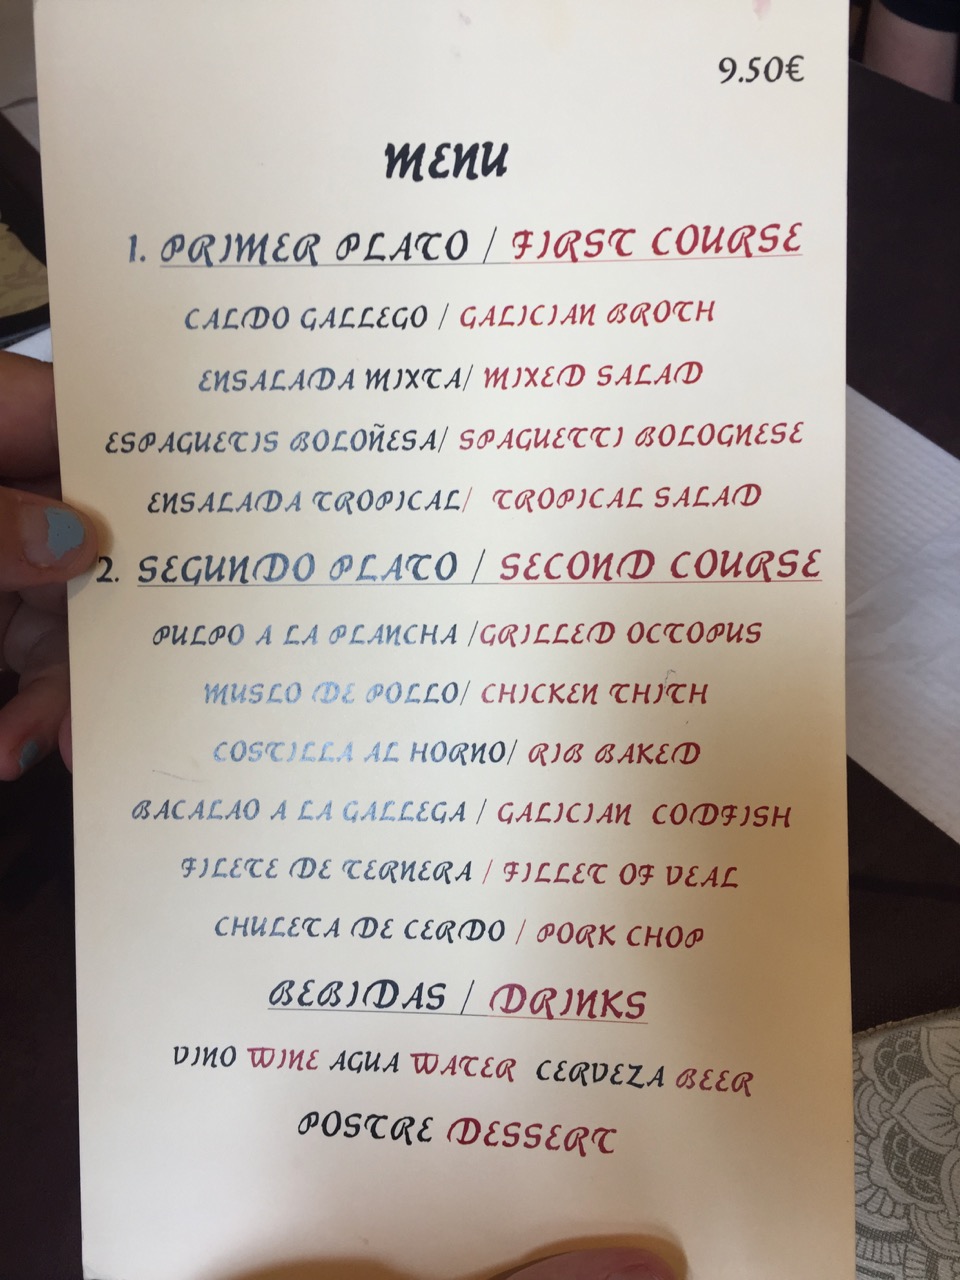 9.50€
MENU
1. PRIMER PLATO / FIRST COURSE
CALDO GALLEGO / GALICIAN BROTH
ENSALADA MIXTA/ MIXED SALAD
ESPAGUETIS BOLOÑESA/ SPAGUETTI BOLOGNESE
ENSALADA TROPICAL/ TROPICAL SALAD
2. SEGUNDO PLATO / SECOND COURSE
PULPO A LA PLANCHA /GRILLED OCTOPUS
MUSLO DE POLLO/ CHICKEN THITH
COSTILLA AL HORNO/ RIB BAKED
BACALAO A LA GALLEGA / GALICIAN CODFISH
FILETE DE TERNERA / FILLET OF VEAL
CHULETA DE CERDO / PORK CHOP
BEBIDAS / DRINKS
VINO WINE AGUA WATER CERVEZA BEER
POSTRE DESSERT